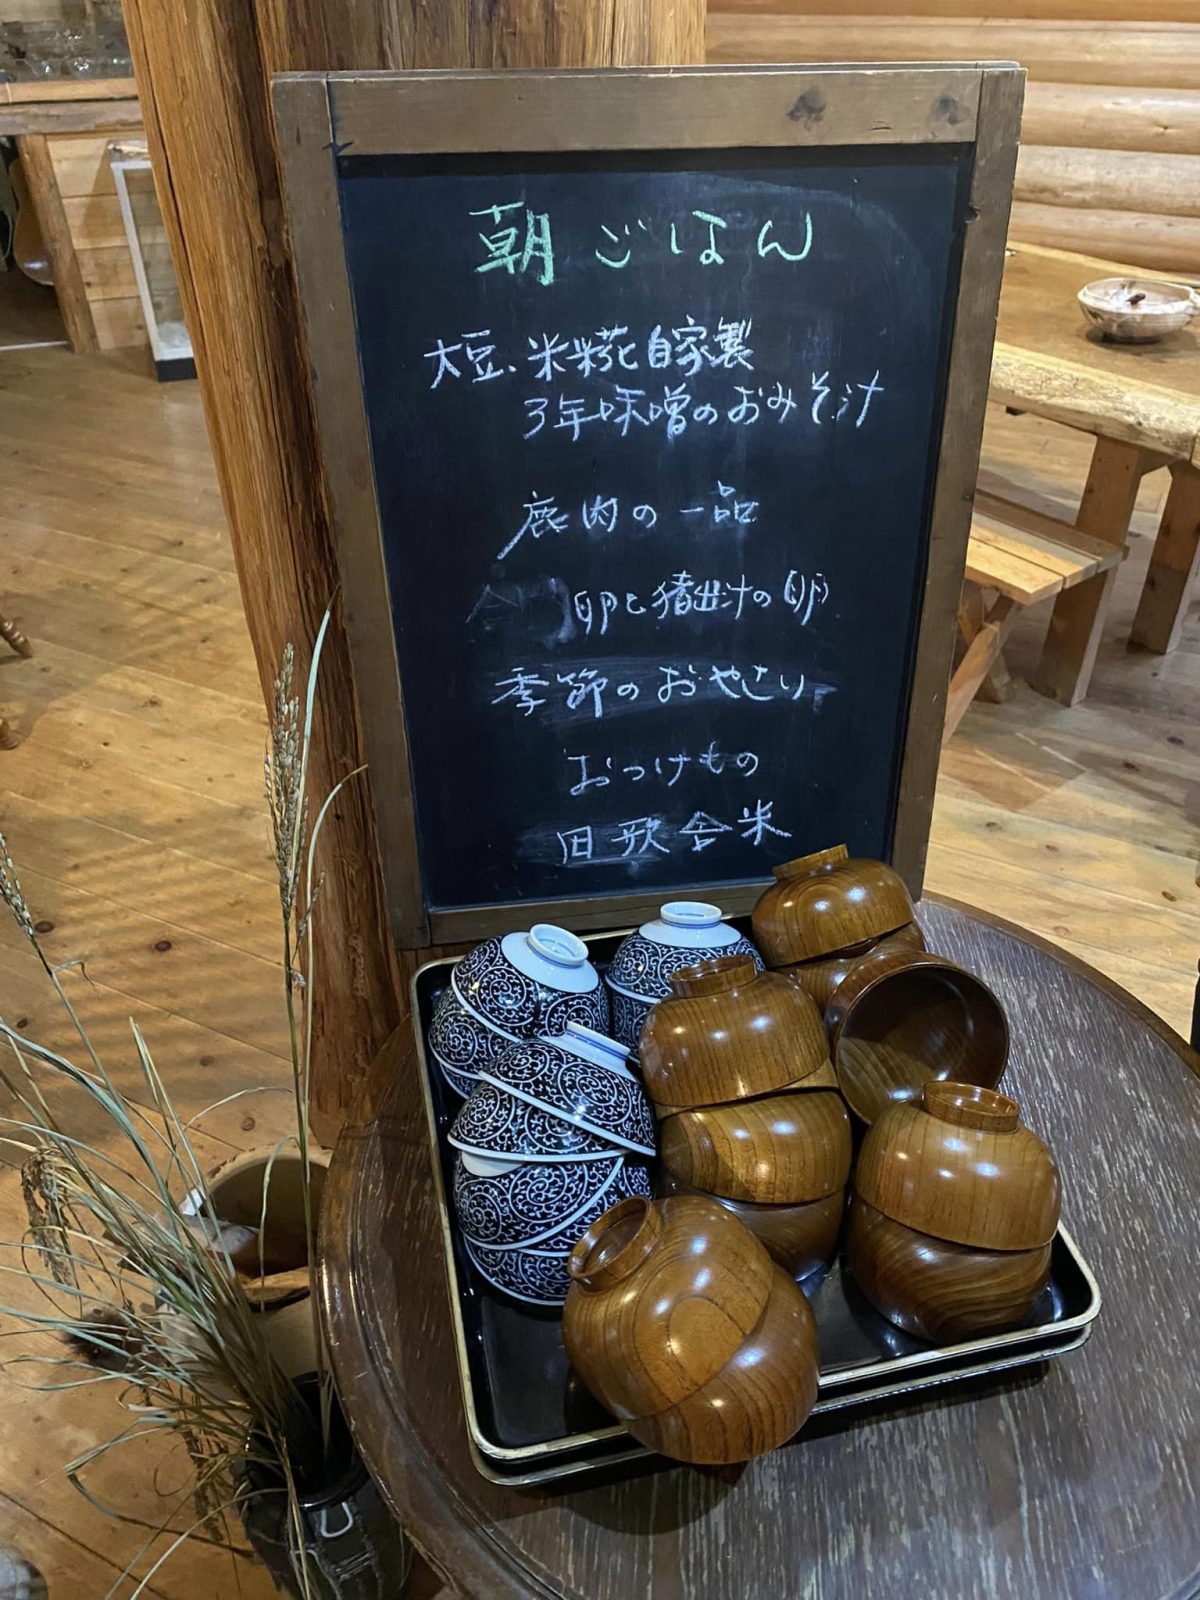 朝ごはん
大豆、米糀と自家製
3年味噌のおみそ汁
鹿肉の一品
卵と猪出汁の卵
季節のおやさい
おつけもの
田歌舎米